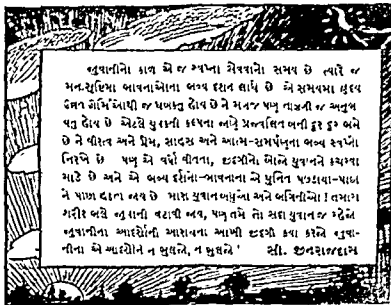 જુવાનીનો કાળ એ જ સ્વપ્ના સેવવાનો સમય છે ત્યારે જ
મનઃસૃષ્ટિમાં ભાવનાઓના ભવ્ય દર્શન લાધે છે એ સમયમાં હૃદય
ઉન્નત ઊર્મિઓથી જ ધબકતું હોય છે ને મનજ પણ તાજગી અનુભ
વતું હોય છે એટલે યુવકની કલ્પના જાણે પ્રજ્વલિત બની દૂર દૂર ભમે
છે ને વીરત્વ અને પ્રેમ, સાહસ અને આત્મ-સમર્પણનાં ભવ્ય સ્વપ્નાં
નિરખે છે પણ એ વર્ષો વીતતા, જીંદગીનો બોજો એવાને કચરવા
માટે છે અને એ ભવ્ય દર્શનો-ભાવનાના એ પુનિત પડછાયા-પાછા
ને પાછા હઠતા જાય છે મારા યુવાન બંધુઓ અને ભગિનીઓ! તમારા
શરીર ભલે જુવાની વટાવી જાય, પણ તમે તો સદા યુવાન જ રહેજો
જુવાનીના આદર્શોની આરાધના આખી જીંદગી કર્યા કરજો જુવા-
નીના એ આદર્શોને ન ભૂલજો, ન ભૂલજો ' સી. જીનરાજદાસ